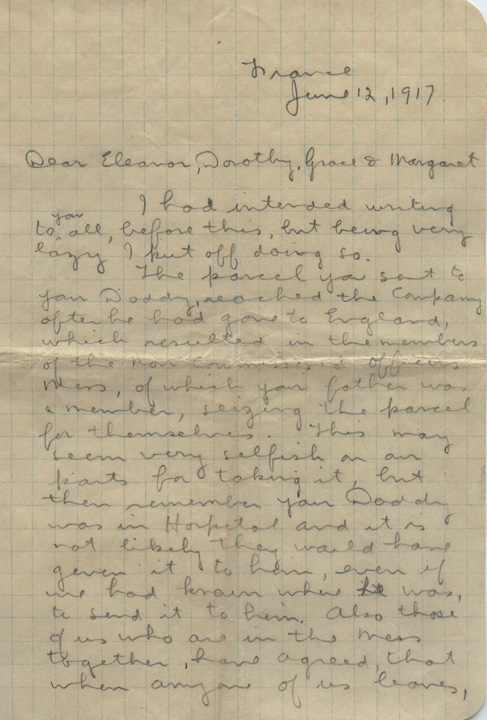 France
June 12, 1917.
Dear Eleanor, Dorothy, Grace & Margaret
I had intended writing
to you all, before this, but being very
lazy I put off doing so.
The parcel you sent to
your Daddy, reached the Company
after he had gone to England,
which resulted in the members
of the non commissioned officers
Mess, of which your father was
a member, seizing the parcel
for themselves. This may
seem very selfish on our
parts for taking it, but
then remember your Daddy
was in Hospital and it is
not likely they would have
given it to him, even if
we had known where he was,
to send it to him. Also those
of us who are in the mess
together, have agreed, that
when anyone of us leaves,